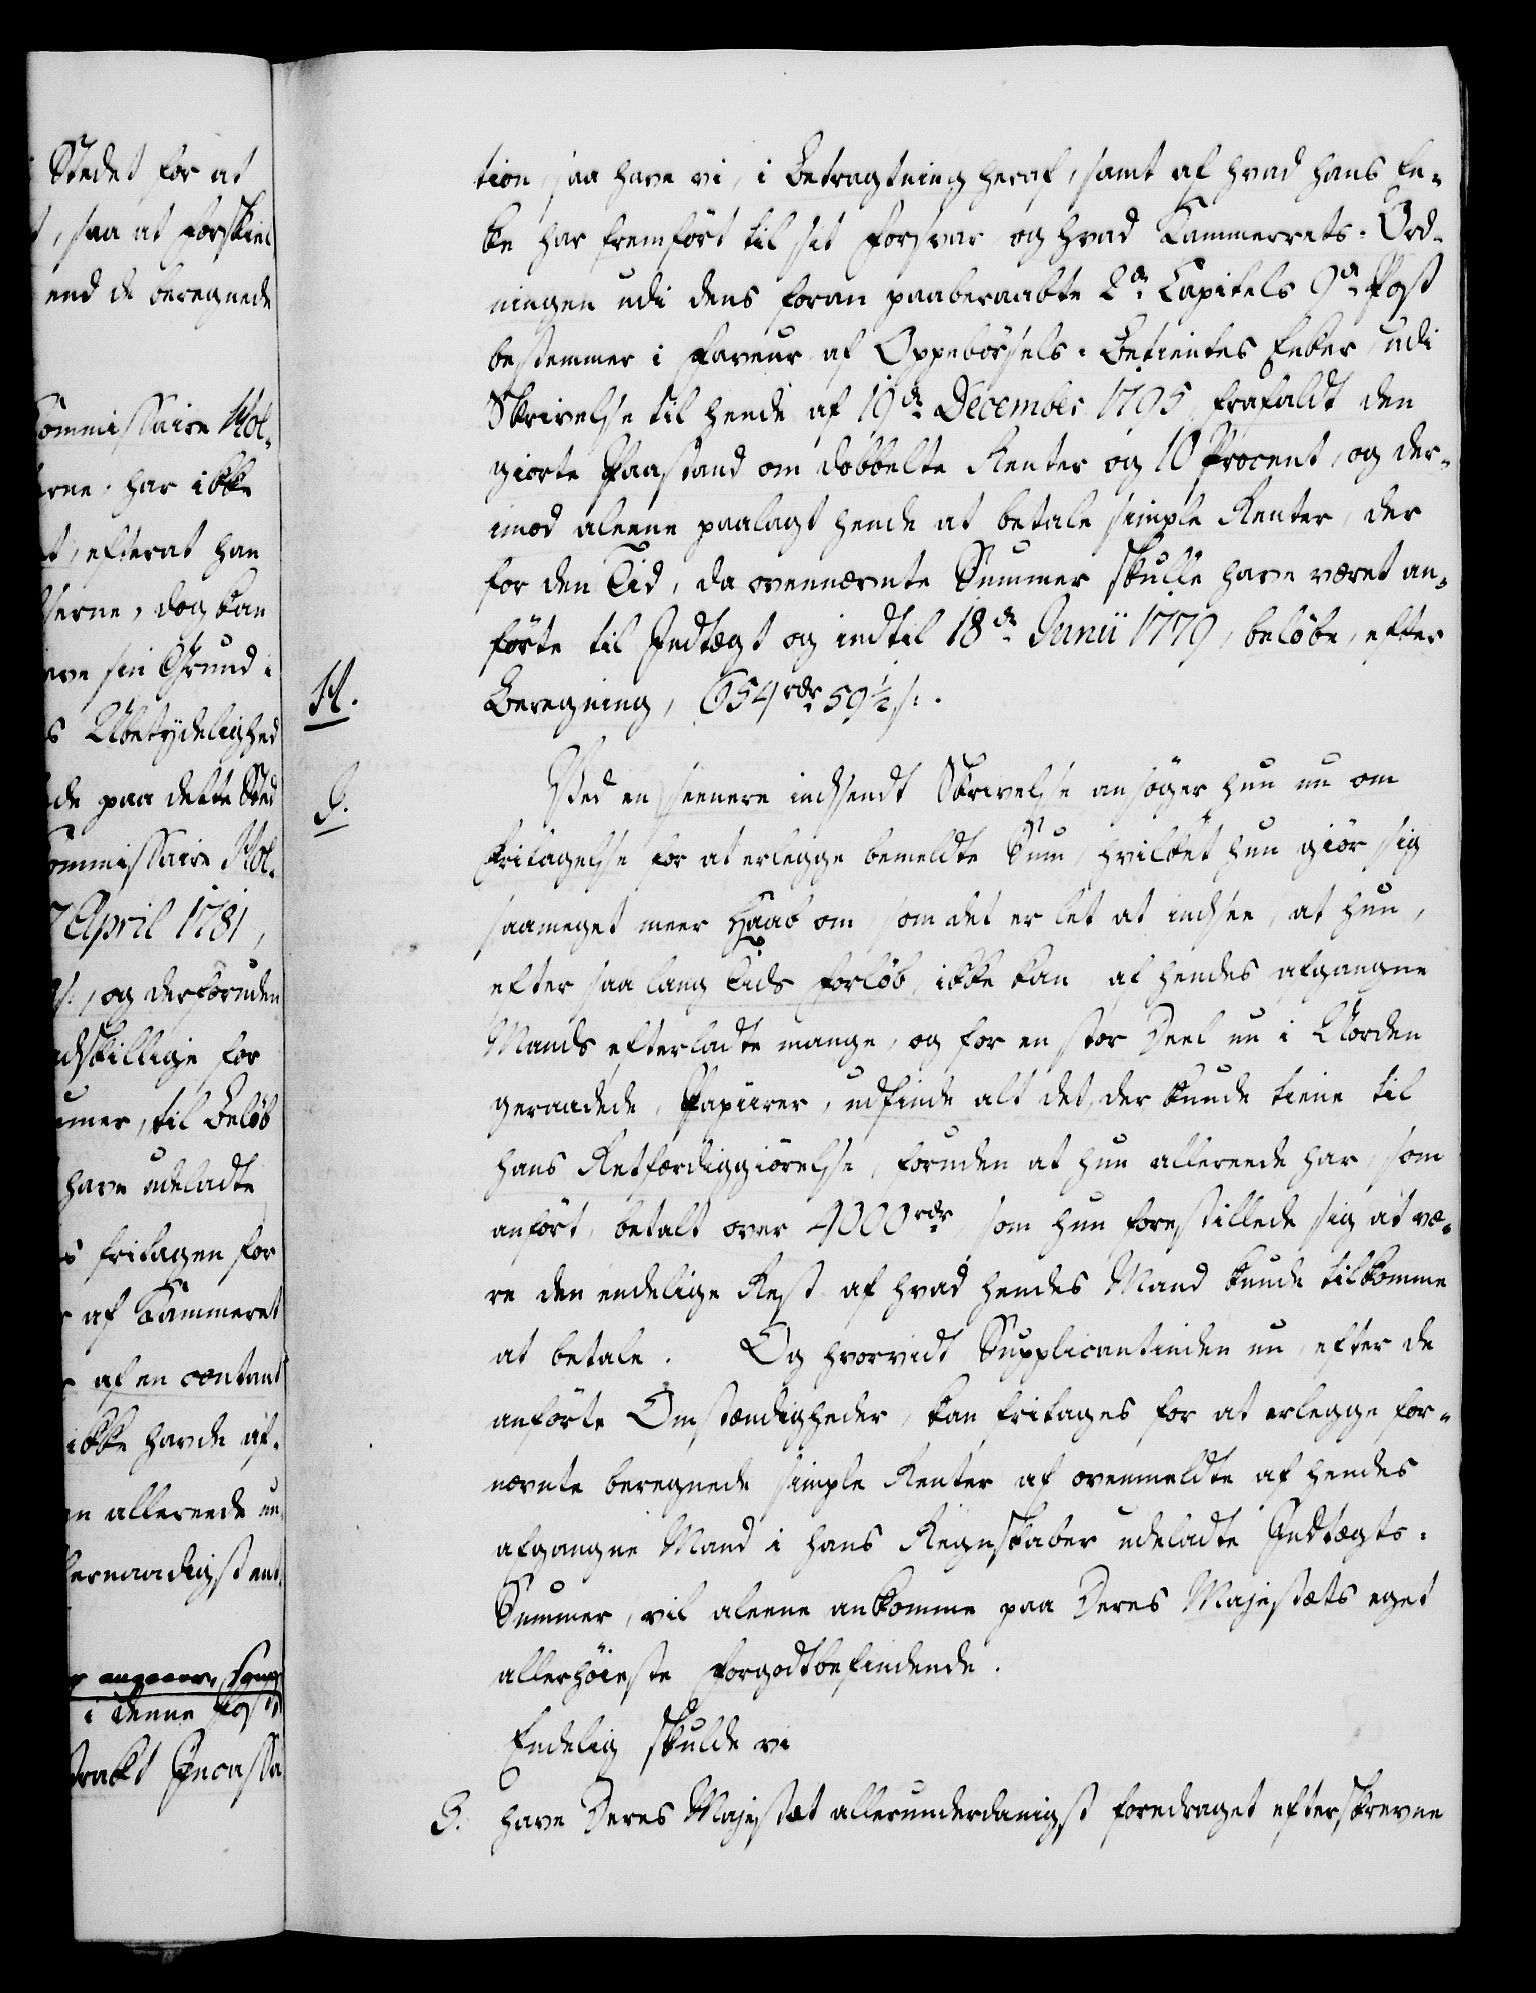 Stedet for at
, saa at forskiel
end de beregnede
Commissaire Hol-
erne, har ikke
t, efterat han
erne, dog kan
ave sin Grund i
s Ubetydelighed
de paa dette Sted
ommissaire Hol-
7 April 1781,
s:, og desforuden
dskillige for
umer, til Beløb
have udeladte
s fritagen for
af Kammeret
af en contant
ikke havde af-
n allereede un-
lernaadigst ant-
i denne Post
trakt Incassa
tion, saa have vi, i Betragtning heraf, samt af hvad hans En-
ke har fremført til sit Forsvar og hvad Kammerrets-Ord-
ningen udi dens foran paaberaabte 2de Capitels 9de Post
bestemmer i Faveur af Oppebørsels-Betientes Enker, udi
Skrivelse til hende af 19de December 1795 frafaldt den
giorte Paastand om dobbelte Renter og 10 Procent, og der-
imod aleene paalagt hende at betale simple Renter, der
for den Tid, da ovennævnte Summer skulle have været an-
førte til Indtægt og indtil 18de Junii 1779, beløbe, efter
H. Beregning, 654 rdr 59½ s:.
I. Ved en seenere indsendt Skrivelse ansøger hun nu om
Fritagelse for at erlegge bemeldte Sum, hvilket hun giør sig
saameget meer Haab om, som det er let at indsee, at hun,
efter saa lang Tids Forløb, ikke kan af hendes afgangne
Mands efterladte mange, og for en stor Deel nu i Uorden
geraadede, Papiirer, udfinde alt det, der kunde tiene til
hans Retfærdiggiørelse, foruden at hun allereede har, som
anført, betalt over 4000 rdr, som hun forestillede sig at væ-
re den endelige Rest af hvad hendes Mand kunde tilkomme
at betale. Og hvorvidt Supplicantinden nu, efter de
anførte Omstændigheder, kan fritages for at erlegge for-
nævnte beregnede simple Renter af ovenmeldte af hendes
afgangne Mand i hans Regnskaber udeladte Indtægts-
Summer, vil aleene ankomme paa Deres Majestæts eget
allerhøieste Forgodtbefindende.
Endelig skulde vi
3. have Deres Majestæt allerunderdanigst foredraget efterskrevne